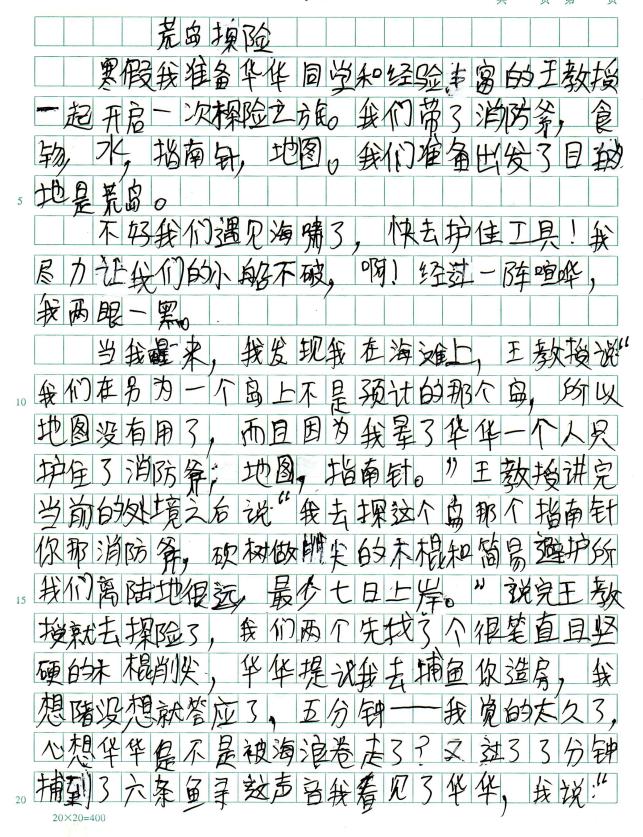 共 页 第 页
荒岛探险
寒假我准备华华同学和经验丰富的王教授
一起开启一次探险之旅。我们带了消防爷，食
物，水，指南针，地图。我们准备出发了目的
5
地是荒岛。
不好我们遇见海啸了，快去护住工具！我
尽力让我们的小船不破，啊！经过一阵喧哗，
我两眼一黑。
当我醒来，我发现我在海滩上，王教授说“
10
我们在另为一个岛上不是预计的那个岛，所以
地图没有用了，而且因为我晕了华华一个人只
护住了消防爷；地图，指南针。”王教授讲完
当前的处境之后说“我去探这个岛那个指南针
你那消防爷，砍树做削尖的木棍和简易避护所
15
我们离陆地很远，最少七日上岸。”说完王教
授就去探险了，我们两个先找了个很笔直且坚
硬的木棍削尖，华华提议我去捕鱼你造房，我
想都没想就答应了，五分钟——我觉的太久了，
心想华华是不是被海浪卷走了？又过了了分钟
20
捕到了六条鱼 这声音我看见了华华，我说：“
20×20=400